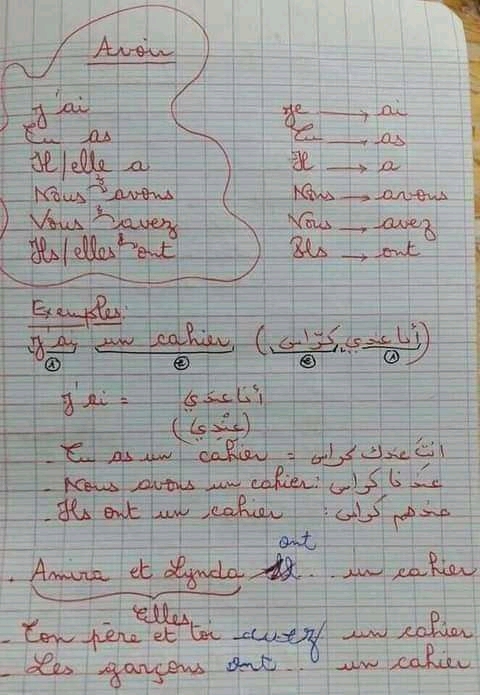 Avoir
j'ai
Tu as
Il/elle a
Nous avons
Vous avez
Ils/elles ont
je → ai
Tu → as
Il → a
Nous → avons
Vous → avez
Ils → ont
Exemples:
j'ai un cahier (أنا عندي كرّاس)
① ② ② ①
j'ai = أنا عندي
(عِنْدِي)
- Tu as un cahier = انتَ عندك كراس
- Nous avons un cahier: عندنا كراس
- Ils ont un cahier : عندهم كراس
ont
. Amira et Lynda .. un cahier
Elles
- Ton père et toi avez un cahier
- Les garçons ont .. un cahier